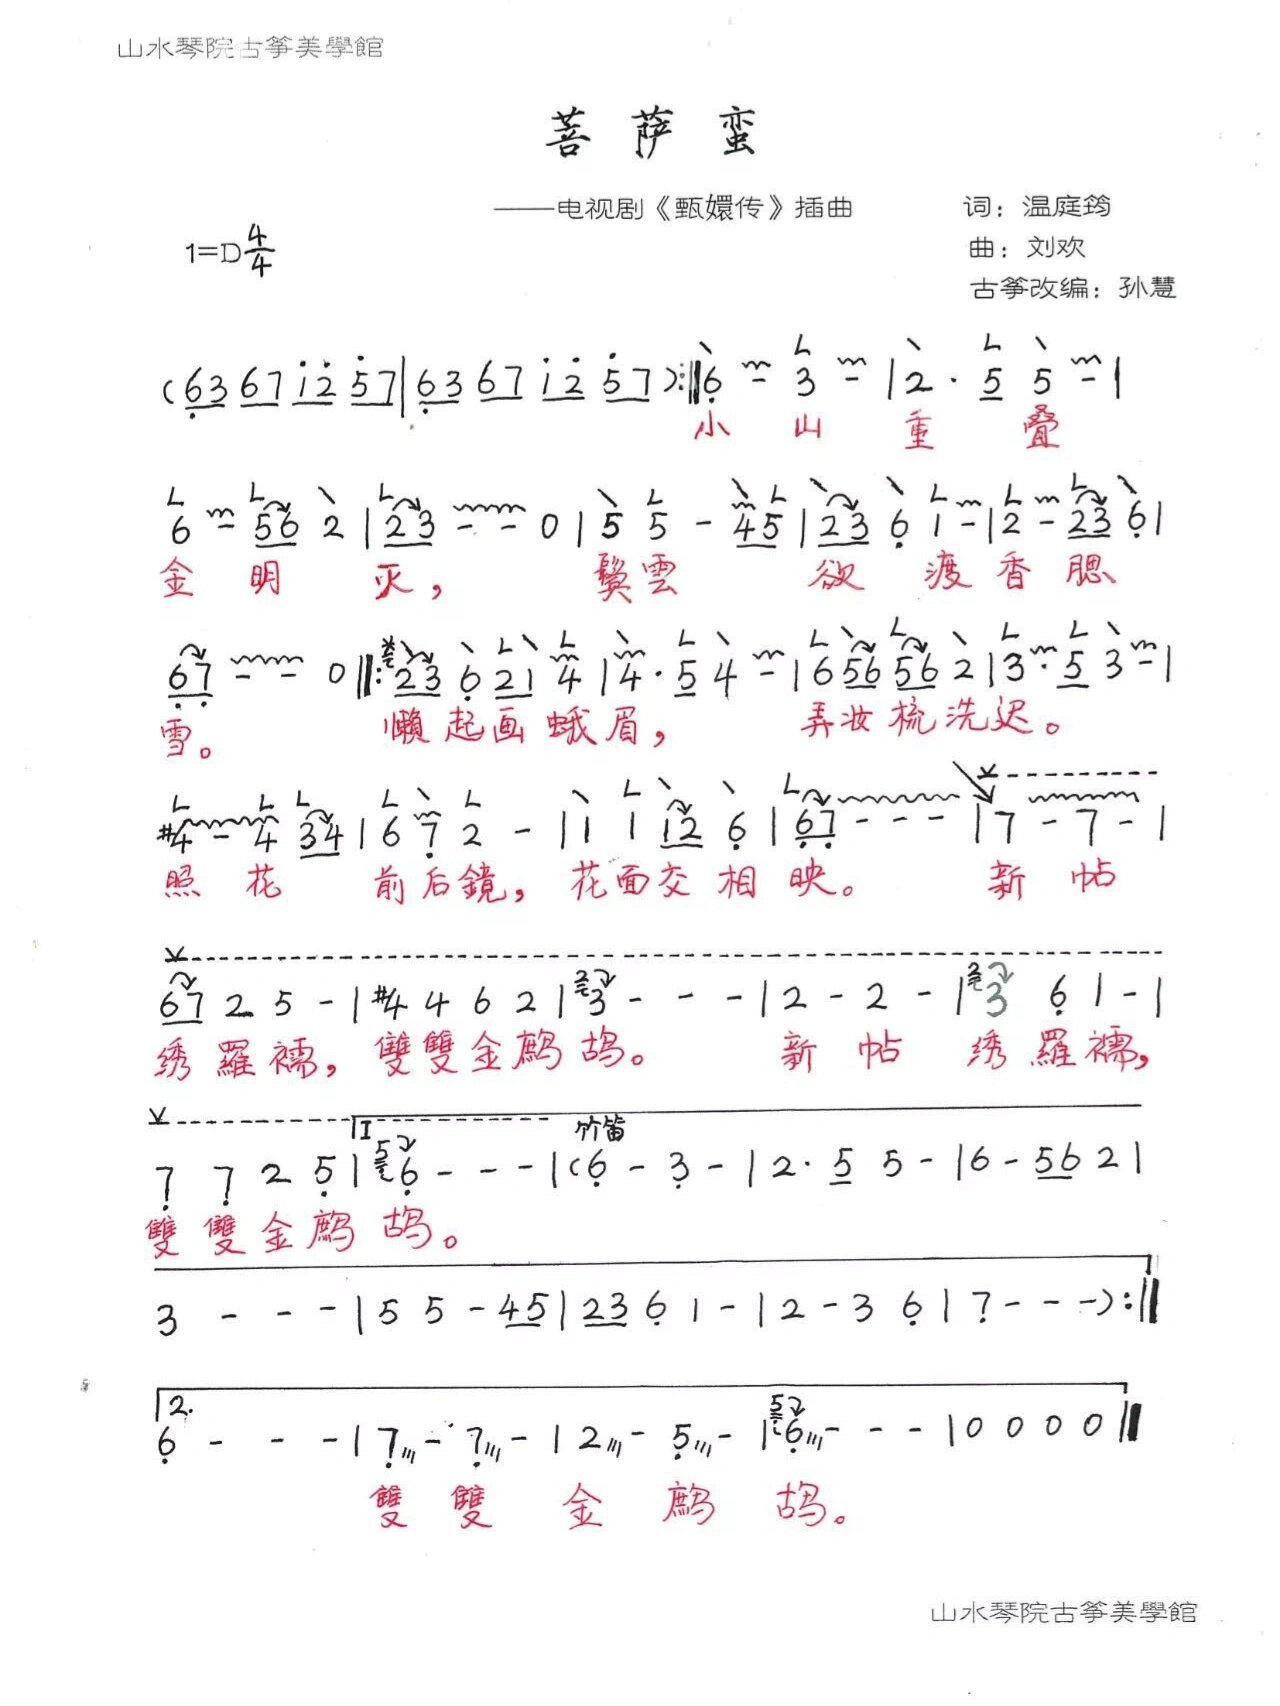 山水琴院古筝美學館
菩萨蛮
——电视剧《甄嬛传》插曲 词：温庭筠
1=D 4/4 曲：刘欢
古筝改编：孙慧
(63 67 i2 57|63 67 i2 57):‖6 - 3 -|2· 5 5 -|
小 山 重 叠
6 - 56 2|23 - - 0|5 5 - 45|23 6 1 -|2 - 23 6|
金 明 灭， 鬓雲 欲 渡 香 腮
67 - - 0‖:23 6 21 4|4· 5 4 -|6 56 56 2|3· 5 3 -|
雪。 懒起画蛾眉， 弄妆梳洗迟。
#4 - 4 34|6 7 2 -|1 1 12 6|67 - - -|7 - 7 -|
照 花 前后鏡，花面交相映。 新 帖
67 2 5 -|#4 4 6 2|3 - - -|2 - 2 -|3 6 1 -|
绣 羅 襦，雙雙金鹧鸪。 新 帖 绣 羅襦，
7 7 2 5|I 5 6 - - -|竹笛 (6 - 3 -|2· 5 5 -|6 - 56 2|
雙 雙 金 鹧 鸪。
3 - - -|5 5 - 45|23 6 1 -|2 - 3 6|7 - - -):‖
2.
6 - - -|7 - 7 -|2 - 5 -|5 6 - - -|0 0 0 0‖
雙 雙 金 鹧 鸪。
山水琴院古筝美學館